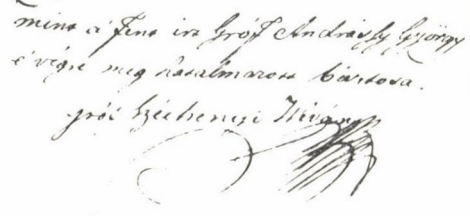 mint a' Fent irt Gróf Andrássy György
e' végre meg hatalmazott biztosa.
gróf Széchenyi István